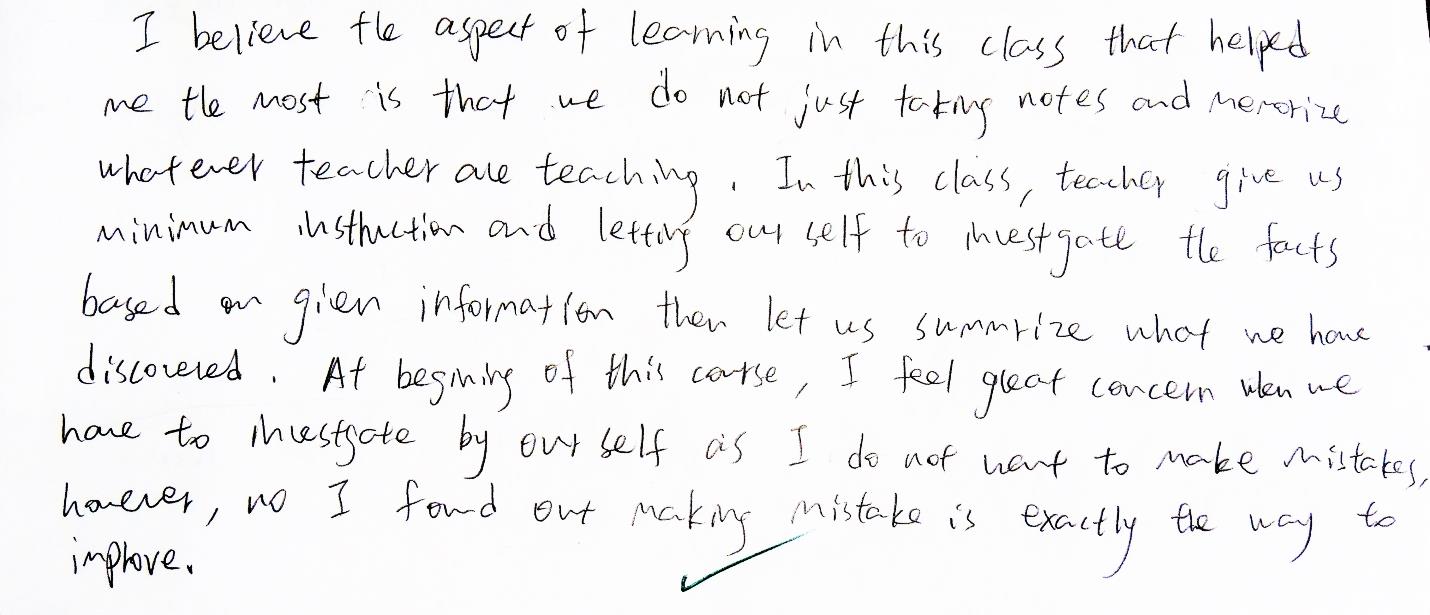 I believe the aspect of learning in this class that helped
me the most is that we do not just taking notes and memorize
whatever teacher are teaching. In this class, teacher give us
minimum instruction and letting our self to investgate the facts
based on given information then let us summrize what we have
discovered. At begining of this course, I feel great concern when we
have to investgate by our self as I do not want to make mistakes,
however, no I found out making mistake is exactly the way to
improve.